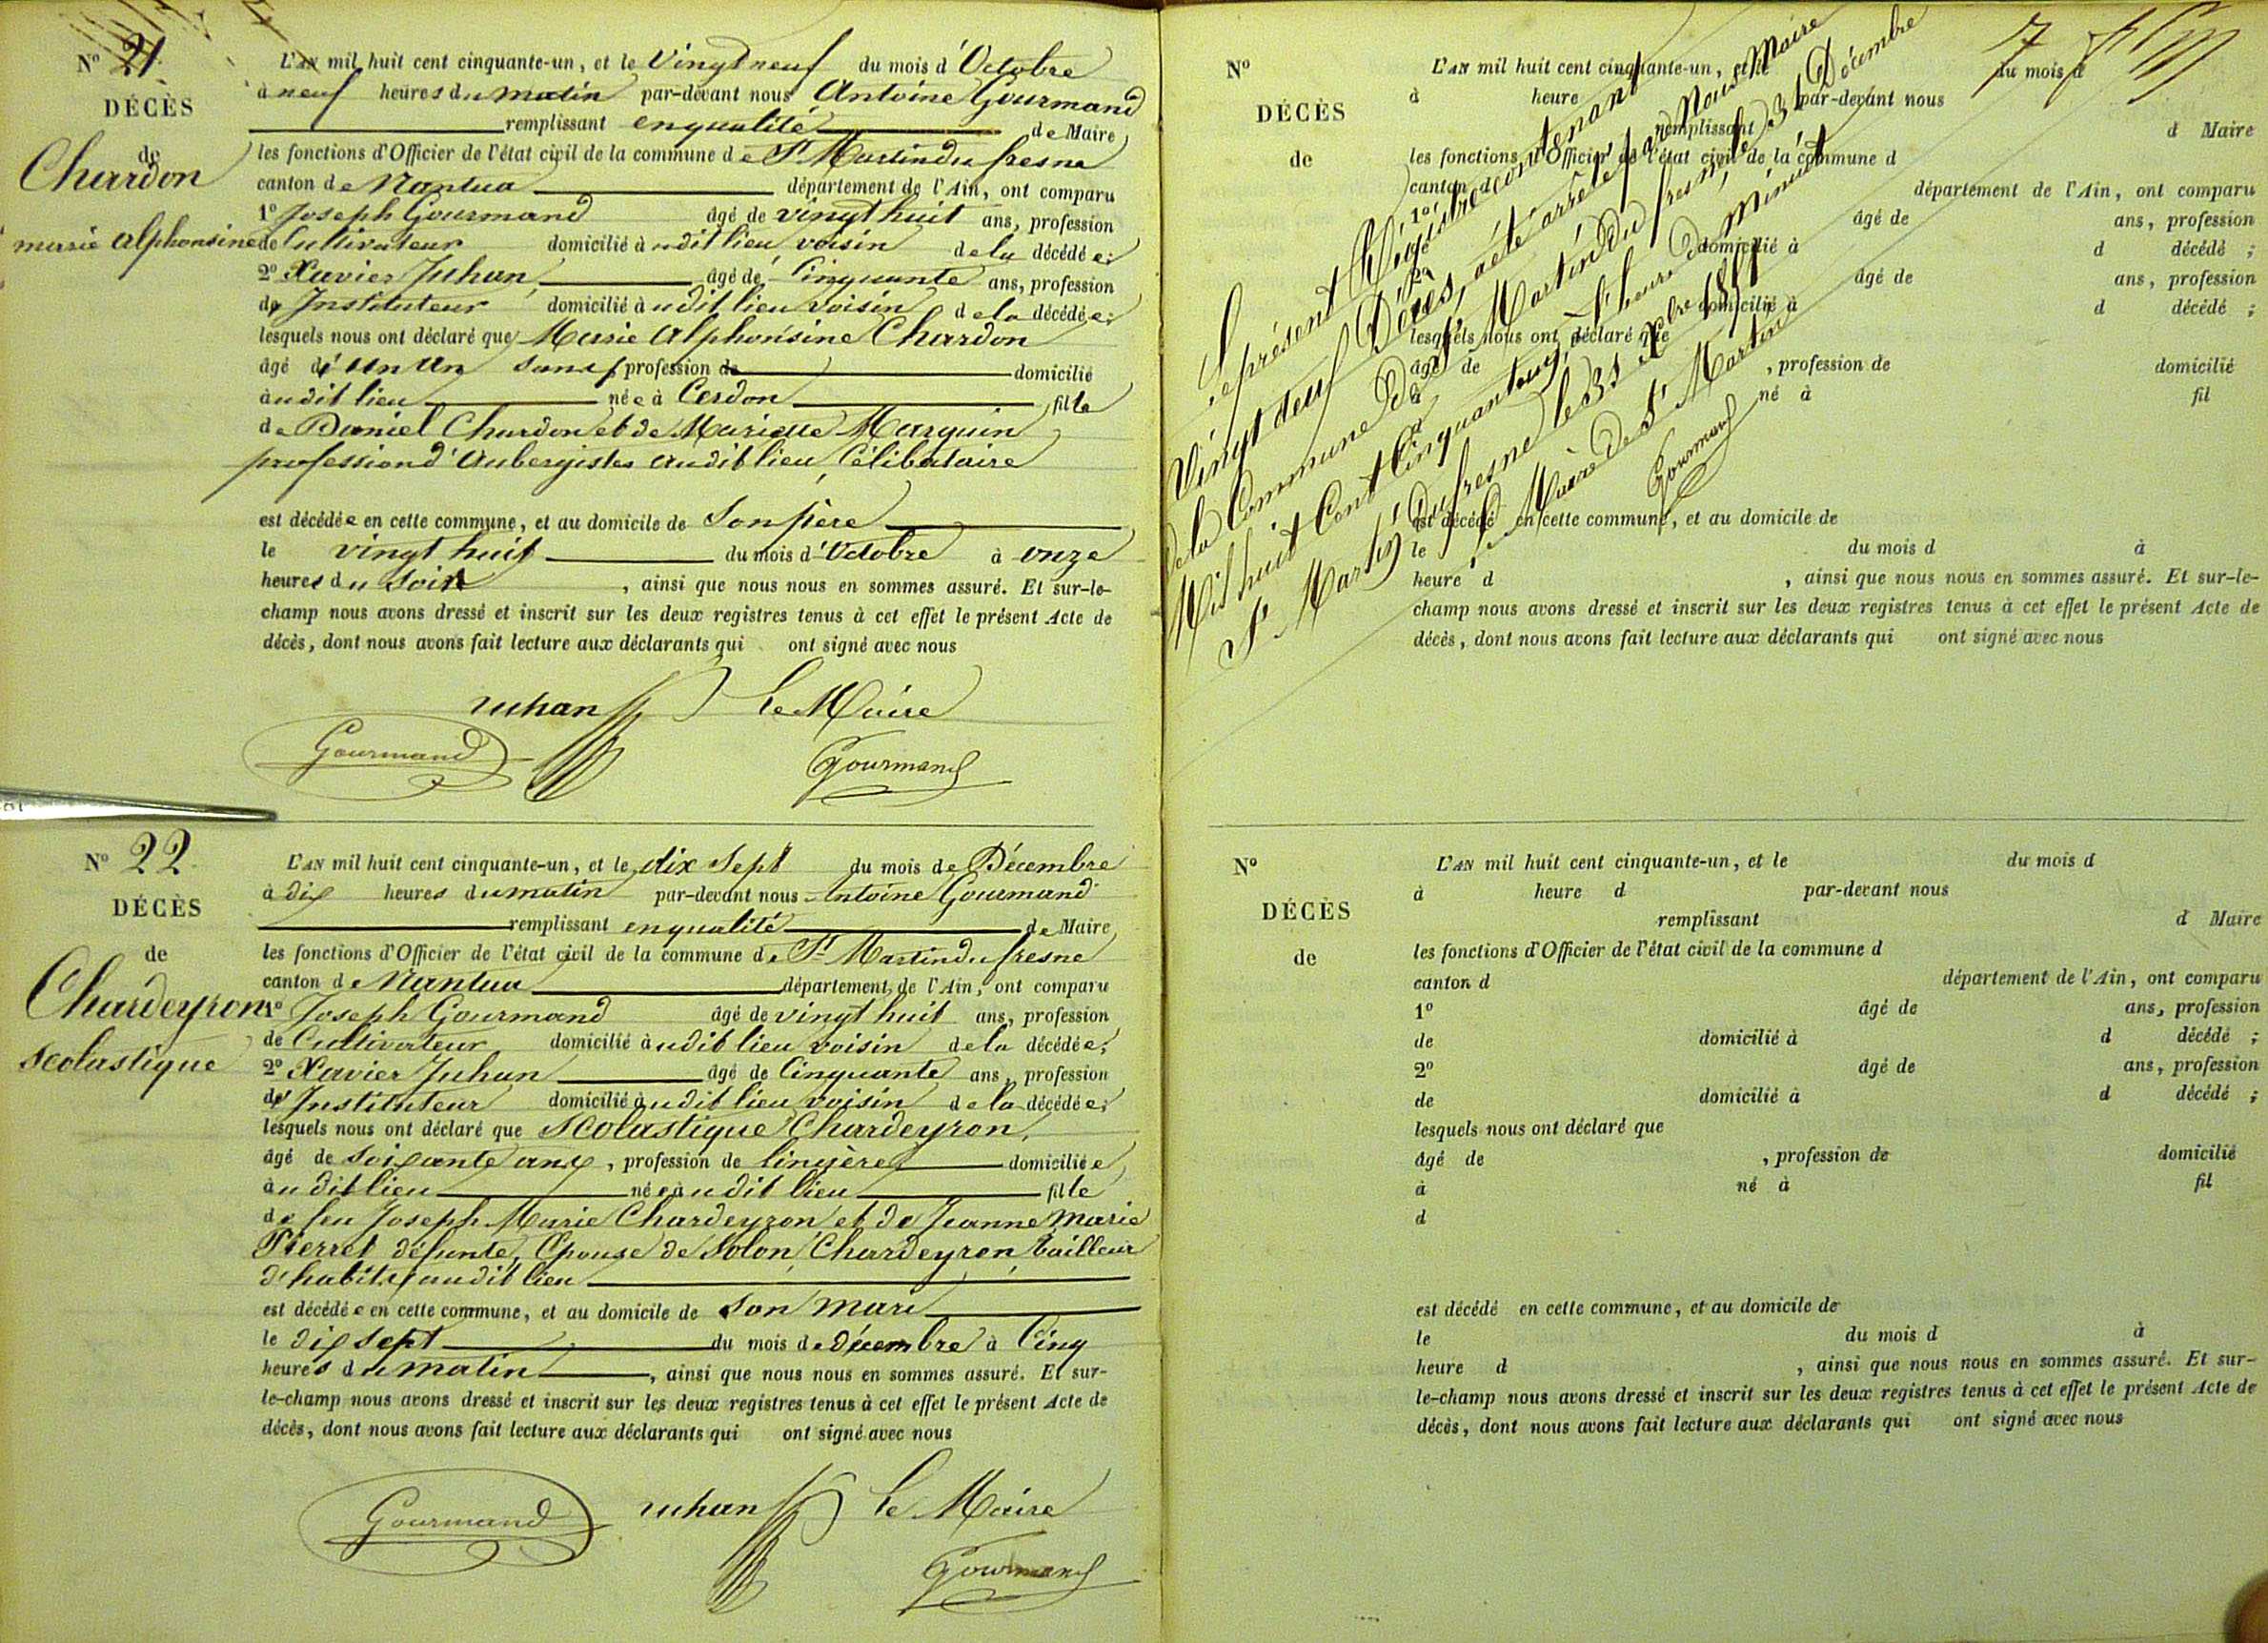 Nº 21
DÉCÈS
de
Chardon
marie alphonsine
L'AN mil huit cent cinquante-un, et le Vingt neuf du mois d'Octobre
à neuf heures du matin par-devant nous Antoine Gourmand
remplissant en qualité de Maire
les fonctions d'Officier de l'état civil de la commune de St Martin du fresne
canton de Nantua département de l'Ain, ont comparu
1º Joseph Gourmand âgé de vingt huit ans, profession
de Cultivateur domicilié audit lieu voisin de la décédée;
2º Xavier Juhan âgé de Cinquante ans, profession
d'Instituteur domicilié audit lieu voisin de la décédée;
lesquels nous ont déclaré que Marie Alphonsine Chardon
âgé d'un an sans profession de domicilié
audit lieu née à Cerdon fille
de Daniel Chardon et de Mariette Marquin
profession d'Aubergistes audit lieu, Célibataire
est décédée en cette commune, et au domicile de Son père
le vingt huit du mois d'Octobre à onze
heures du soir, ainsi que nous nous en sommes assuré. Et sur-le-
champ nous avons dressé et inscrit sur les deux registres tenus à cet effet le présent Acte de
décès, dont nous avons fait lecture aux déclarants qui ont signé avec nous
Juhan Le Maire
Gourmand Gourmand
Nº 22
DÉCÈS
de
Chardeyron
Scolastique
L'AN mil huit cent cinquante-un, et le dix Sept du mois de Décembre
à dix heures du matin par-devant nous Antoine Gourmand
remplissant en qualité de Maire
les fonctions d'Officier de l'état civil de la commune de St Martin du fresne
canton de Nantua département de l'Ain, ont comparu
1º Joseph Gourmand âgé de vingt huit ans, profession
de Cultivateur domicilié audit lieu voisin de la décédée;
2º Xavier Juhan âgé de Cinquante ans, profession
d'Instituteur domicilié audit lieu voisin de la décédée;
lesquels nous ont déclaré que Scolastique Chardeyron,
âgé de soixante ans, profession de lingère domiciliée
audit lieu née audit lieu fille
de feu Joseph Marie Chardeyron et de Jeanne Marie
Pierret défunte, Epouse de Solon Chardeyron tailleur
d'habits audit lieu
est décédée en cette commune, et au domicile de son mari
le dix sept du mois de décembre à Cinq
heures du matin, ainsi que nous nous en sommes assuré. Et sur-
le-champ nous avons dressé et inscrit sur les deux registres tenus à cet effet le présent Acte de
décès, dont nous avons fait lecture aux déclarants qui ont signé avec nous
Gourmand Juhan Le Maire
Gourmand
Nº
DÉCÈS
de
L'AN mil huit cent cinquante-un, et le du mois d
à heure par-devant nous
remplissant d Maire
les fonctions d'Officier de l'état civil de la commune d
canton d département de l'Ain, ont comparu
1º âgé de ans, profession
domicilié à d décédé ;
2º âgé de ans, profession
domicilié à d décédé ;
lesquels nous ont déclaré que
âgé de , profession de domicilié
à né à fil
d
est décédé en cette commune, et au domicile de
le du mois d à
heure d , ainsi que nous nous en sommes assuré. Et sur-le-
champ nous avons dressé et inscrit sur les deux registres tenus à cet effet le présent Acte de
décès, dont nous avons fait lecture aux déclarants qui ont signé avec nous
Le présent Régistre contenant
Vingt deux Décès, a été arrêté par Nous Maire
de la Commune de St Martin du fresne le 31 Décembre
Mil huit Cent Cinquante un, à l'heure de Minuit
St Martin du fresne le 31 Xbre 1851
Le Maire de St Martin
Gourmand
Nº
DÉCÈS
de
L'AN mil huit cent cinquante-un, et le du mois d
à heure d par-devant nous
remplissant d Maire
les fonctions d'Officier de l'état civil de la commune d
canton d département de l'Ain, ont comparu
1º âgé de ans, profession
de domicilié à d décédé ;
2º âgé de ans, profession
de domicilié à d décédé ;
lesquels nous ont déclaré que
âgé de , profession de domicilié
à né à fil
d
est décédé en cette commune, et au domicile de
le du mois d à
heure d , ainsi que nous nous en sommes assuré. Et sur-
le-champ nous avons dressé et inscrit sur les deux registres tenus à cet effet le présent Acte de
décès, dont nous avons fait lecture aux déclarants qui ont signé avec nous